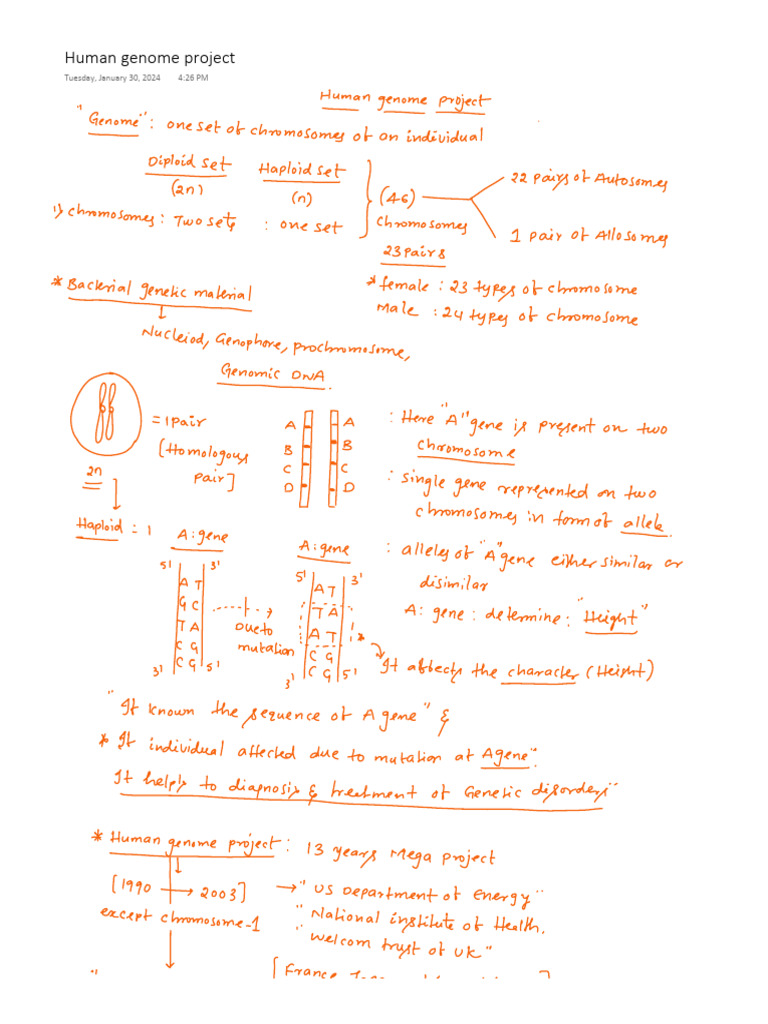 Human genome project
Tuesday, January 30, 2024 4:26 PM
Human genome project
"Genome": one set of chromosomes of an individual
Diploid set Haploid set
(2n) (n)
1) chromosomes: Two sets : one set
(46)
chromosomes
23 pairs
22 pairs of Autosomes
1 pair of Allosomes
* female : 23 types of chromosome
Male : 24 types of chromosome
* Bacterial genetic material
Nucleiod, Genophore, prochromosome,
Genomic DNA
= 1 pair
[Homologous
pair]
2n
Haploid = 1
A A
B B
C C
D D
: Here "A" gene is present on two
chromosome
: single gene represented on two
chromosomes in form of allele.
: alleles of "A" gene either similar or
disimilar
A: gene : determine : "Height"
A: gene
5' 3'
A T
G C
T A
C G
C G
3' 5'
Due to
mutation
A: gene
5' 3'
A T
T A
A T
C G
C G
3' 5'
*
It affects the character (Height)
"If known the sequence of A gene" &
* If individual affected due to mutation at A gene".
It helps to diagnosis & treatment of Genetic disorders"
* Human genome project: 13 years Mega project
[1990 → 2003]
except chromosome-1
→ "US Department of Energy"
"National institute of Health.
"welcom trust of UK"
[France